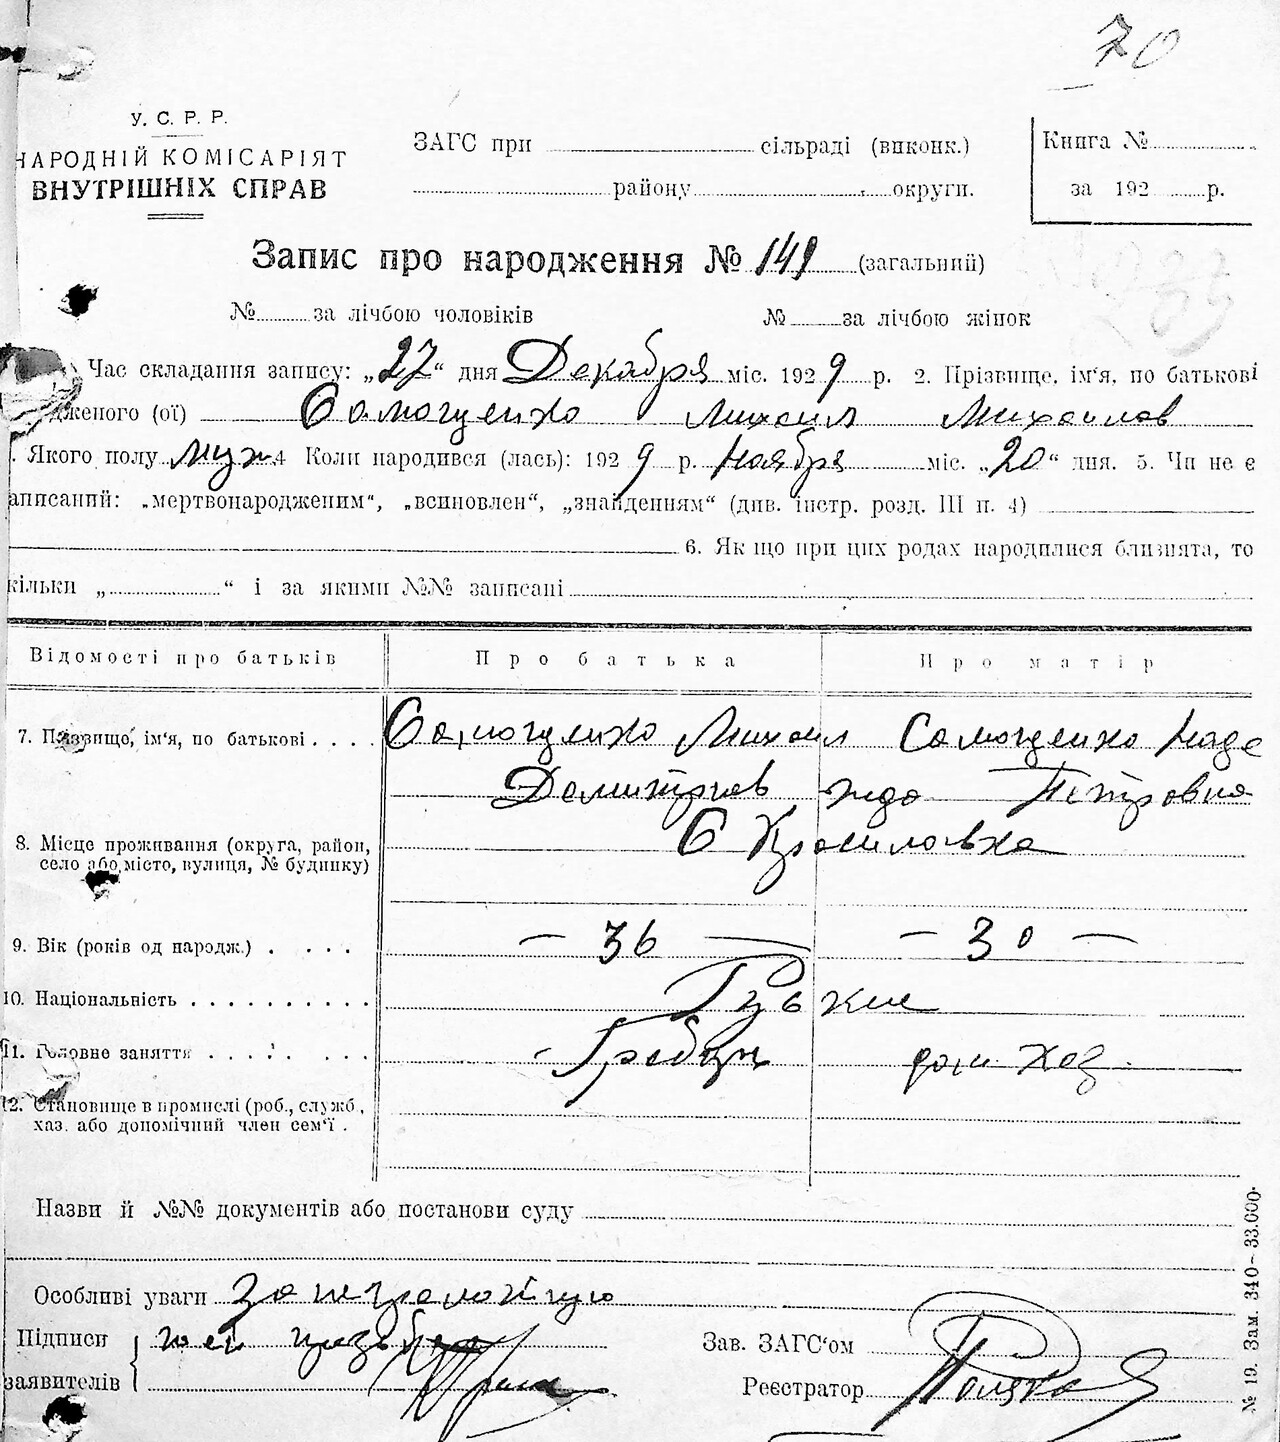 70
У. С. Р. Р.
НАРОДНІЙ КОМІСАРІЯТ
ВНУТРІШНІХ СПРАВ
ЗАГС при сільраді (виконк.)
району округи.
Книга №
за 192 р.
Запис про народження № 141 (загальний)
№ за лічбою чоловіків № за лічбою жінок
Час складання запису: „27“ дня Декабря міс. 1929 р. 2. Прізвище, ім‘я, по батькові
дженого (ої) Самощенко Михаил Михайлов
. Якого полу муж. 4 Коли народився (лась): 1929 р. Ноября міс. „20“ дня. 5. Чи не є
аписаний: „мертвонародженим“, „всиновлен“, „знайденням“ (див. інстр. розд. III п. 4)
6. Як що при цих родах народилися близнята, то
кільки „ “ і за якими №№ записані
Відомості про батьків Про батька Про матір
7. Прізвище, ім‘я, по батькові . . . . Самощенко Михаил Самощенко Наде
Демитриев жда Петровна
8. Місце проживання (округа, район,
село або місто, вулиця, № будинку)
9. Вік (років од народж.) . . . . — 36 — — 30 —
10. Національність . . . . . . . . . .
11. Головне заняття . . . . . . . . дом хоз.
12. Становище в промислі (роб., служб.,
хаз. або допомічний член сем‘ї .
Назви й №№ документів або постанови суду
Особливі уваги за неграмотную
Підписи
заявителів
Зав. ЗАГС‘ом
Реєстратор
№ 19. Зам. 340—33.000.